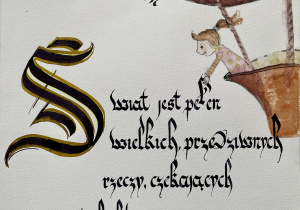 Świat jest pełen
wielkich, przedziwnych
rzeczy, czekających